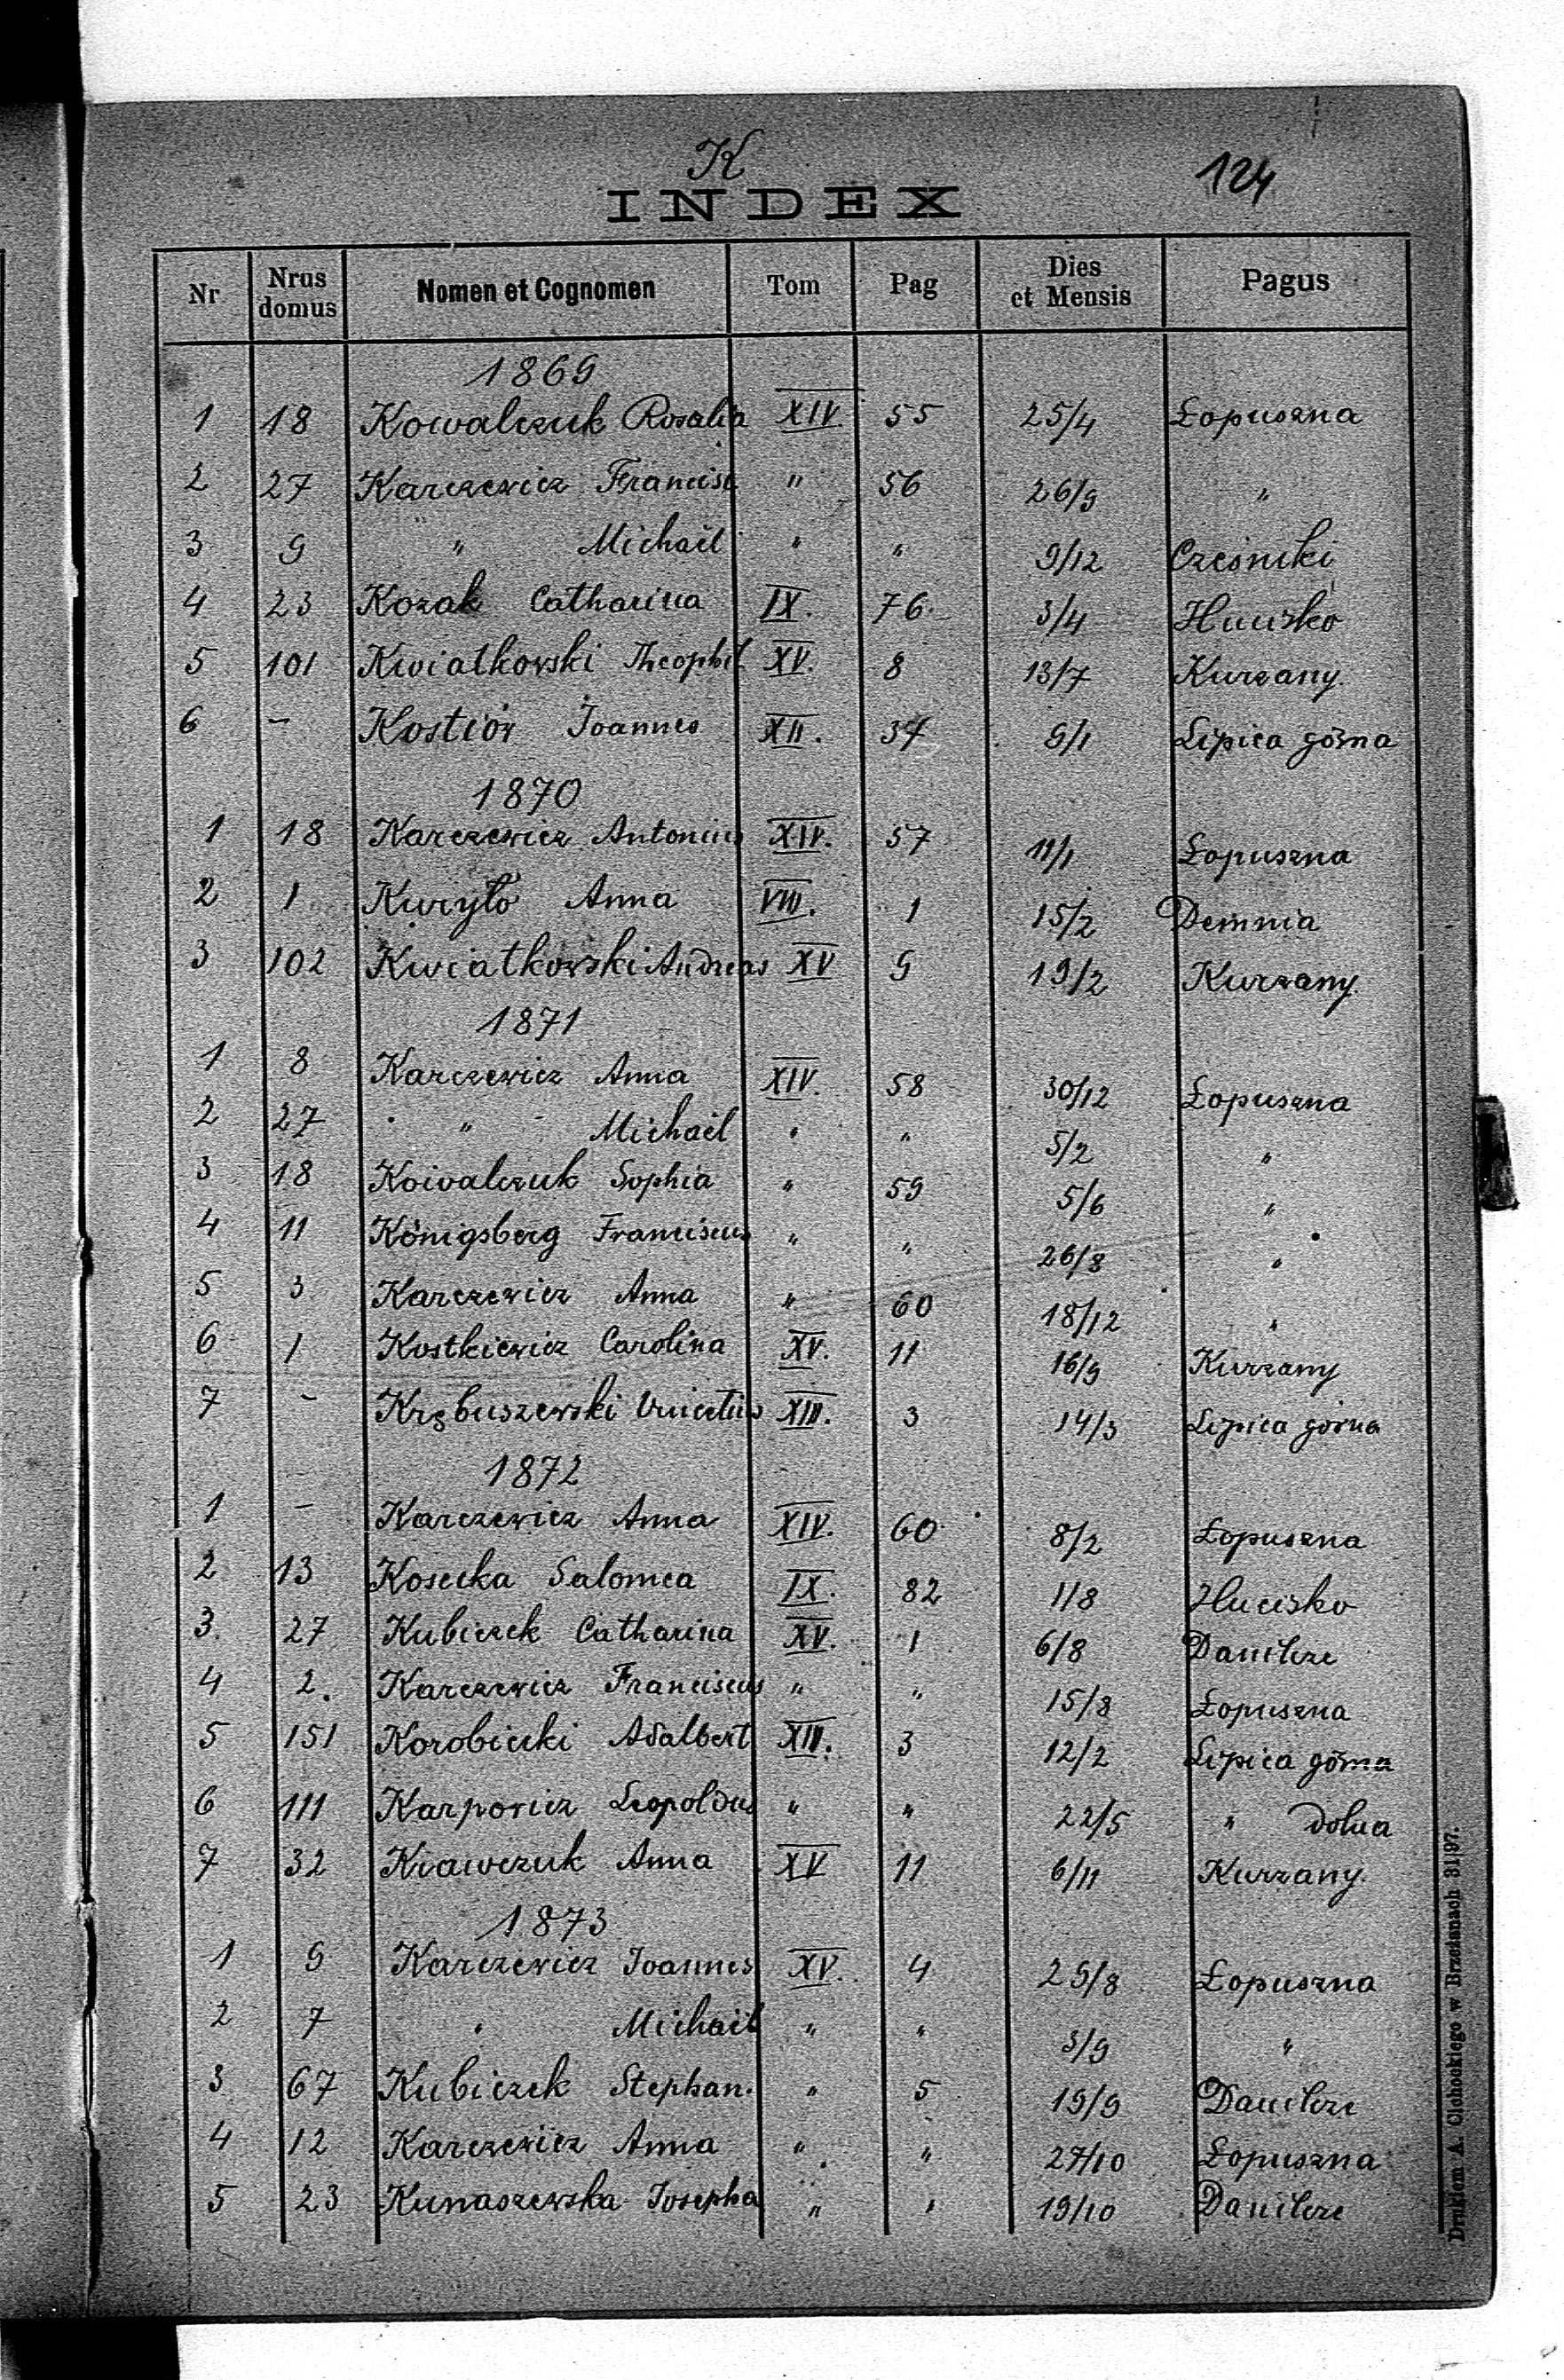 K
124
INDEX
Nr Nrus domus Nomen et Cognomen Tom Pag Dies et Mensis Pagus
1869
1 18 Kowalczuk Rosalia XIV. 55 25/4 Łopuszna
2 27 Karczewicz Francisc " 56 26/9 "
3 9 " Michaël " " 9/12 Cześniki
4 23 Kozak Catharina IX. 76. 3/4 Hucisko
5 101 Kwiatkowski Theophil XV. 8 13/7 Kurzany.
6 - Kostiów Joannes XII. 34 9/1 Lipica górna
1870
1 18 Karczewicz Antonius XIV. 57 11/1 Łopuszna
2 1 Kuryło Anna VIII. 1 15/2 Demnia
3 102 Kwiatkowski Andreas XV 9 19/2 Kurzany.
1871
1 8 Karczewicz Anna XIV. 58 30/12 Łopuszna
2 27 " Michaël " " 5/2 "
3 18 Kowalczuk Sophia " 59 5/6 "
4 11 Königsberg Franciscus " " 26/8 "
5 3 Karczewicz Anna " 60 18/12 "
6 1 Kostkiewicz Carolina XV. 11 16/9 Kurzany
7 - Krębuszewski XIII. 3 14/3 Lipica górna
1872
1 - Karczewicz Anna XIV. 60 8/2 Łopuszna
2 13 Kosecka Salomea IX. 82 1/8 Hucisko
3. 27 Kubiczek Catharina XV. 1 6/8 Danilcze
4 2. Karczewicz Franciscus " " 15/8 Łopuszna
5 151 Korobicki Adalbert XIII. 3 12/2 Lipica górna
6 111 Karpowicz Leopoldus " " 22/5 " dolna
7 32 Krawczuk Anna XV 11 6/11 Kurzany.
1873
1 9 Karczewicz Joannes XV. 4 29/8 Łopuszna
2 7 " Michaël " " 3/9 "
3 67 Kubiczek Stephan. " 5 19/9 Danilcze
4 12 Karczewicz Anna " " 27/10 Łopuszna
5 23 Kunaszewska Josepha " " 19/10 Danilcze
Drukiem A. Cichockiego w Brzeżanach 31|97.